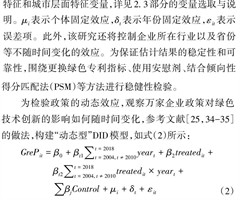 特征和城市层面特征变量,详见 2.3 部分的变量选取与说
明。μᵢ表示个体固定效应,δₜ表示年份固定效应,εᵢₜ表示
误差项。此外,该研究还将控制企业所在行业以及省份
等不随时间变化的效应。为保证估计结果的稳定性和可
靠性,围绕更换绿色专利指标、使用安慰剂、结合倾向性
得分匹配法(PSM)等方法进行稳健性检验。
为检验政策的动态效应,观察万家企业政策对绿色
技术创新的影响如何随时间变化,参考文献[25,34-35]
的做法,构建“动态型”DID模型,如式(2)所示:
GrePᵢₜ = β₀ + βₜ₁∑ t = 2018 t = 2004, t ≠ 2010 yearₜ + β₂treatedᵢₜ +
βₜ₃∑ t = 2018 t = 2004, t ≠ 2010 treatedᵢₜ × yearₜ +
∑βⱼControl + μᵢ + δₜ + εᵢₜ
(2)